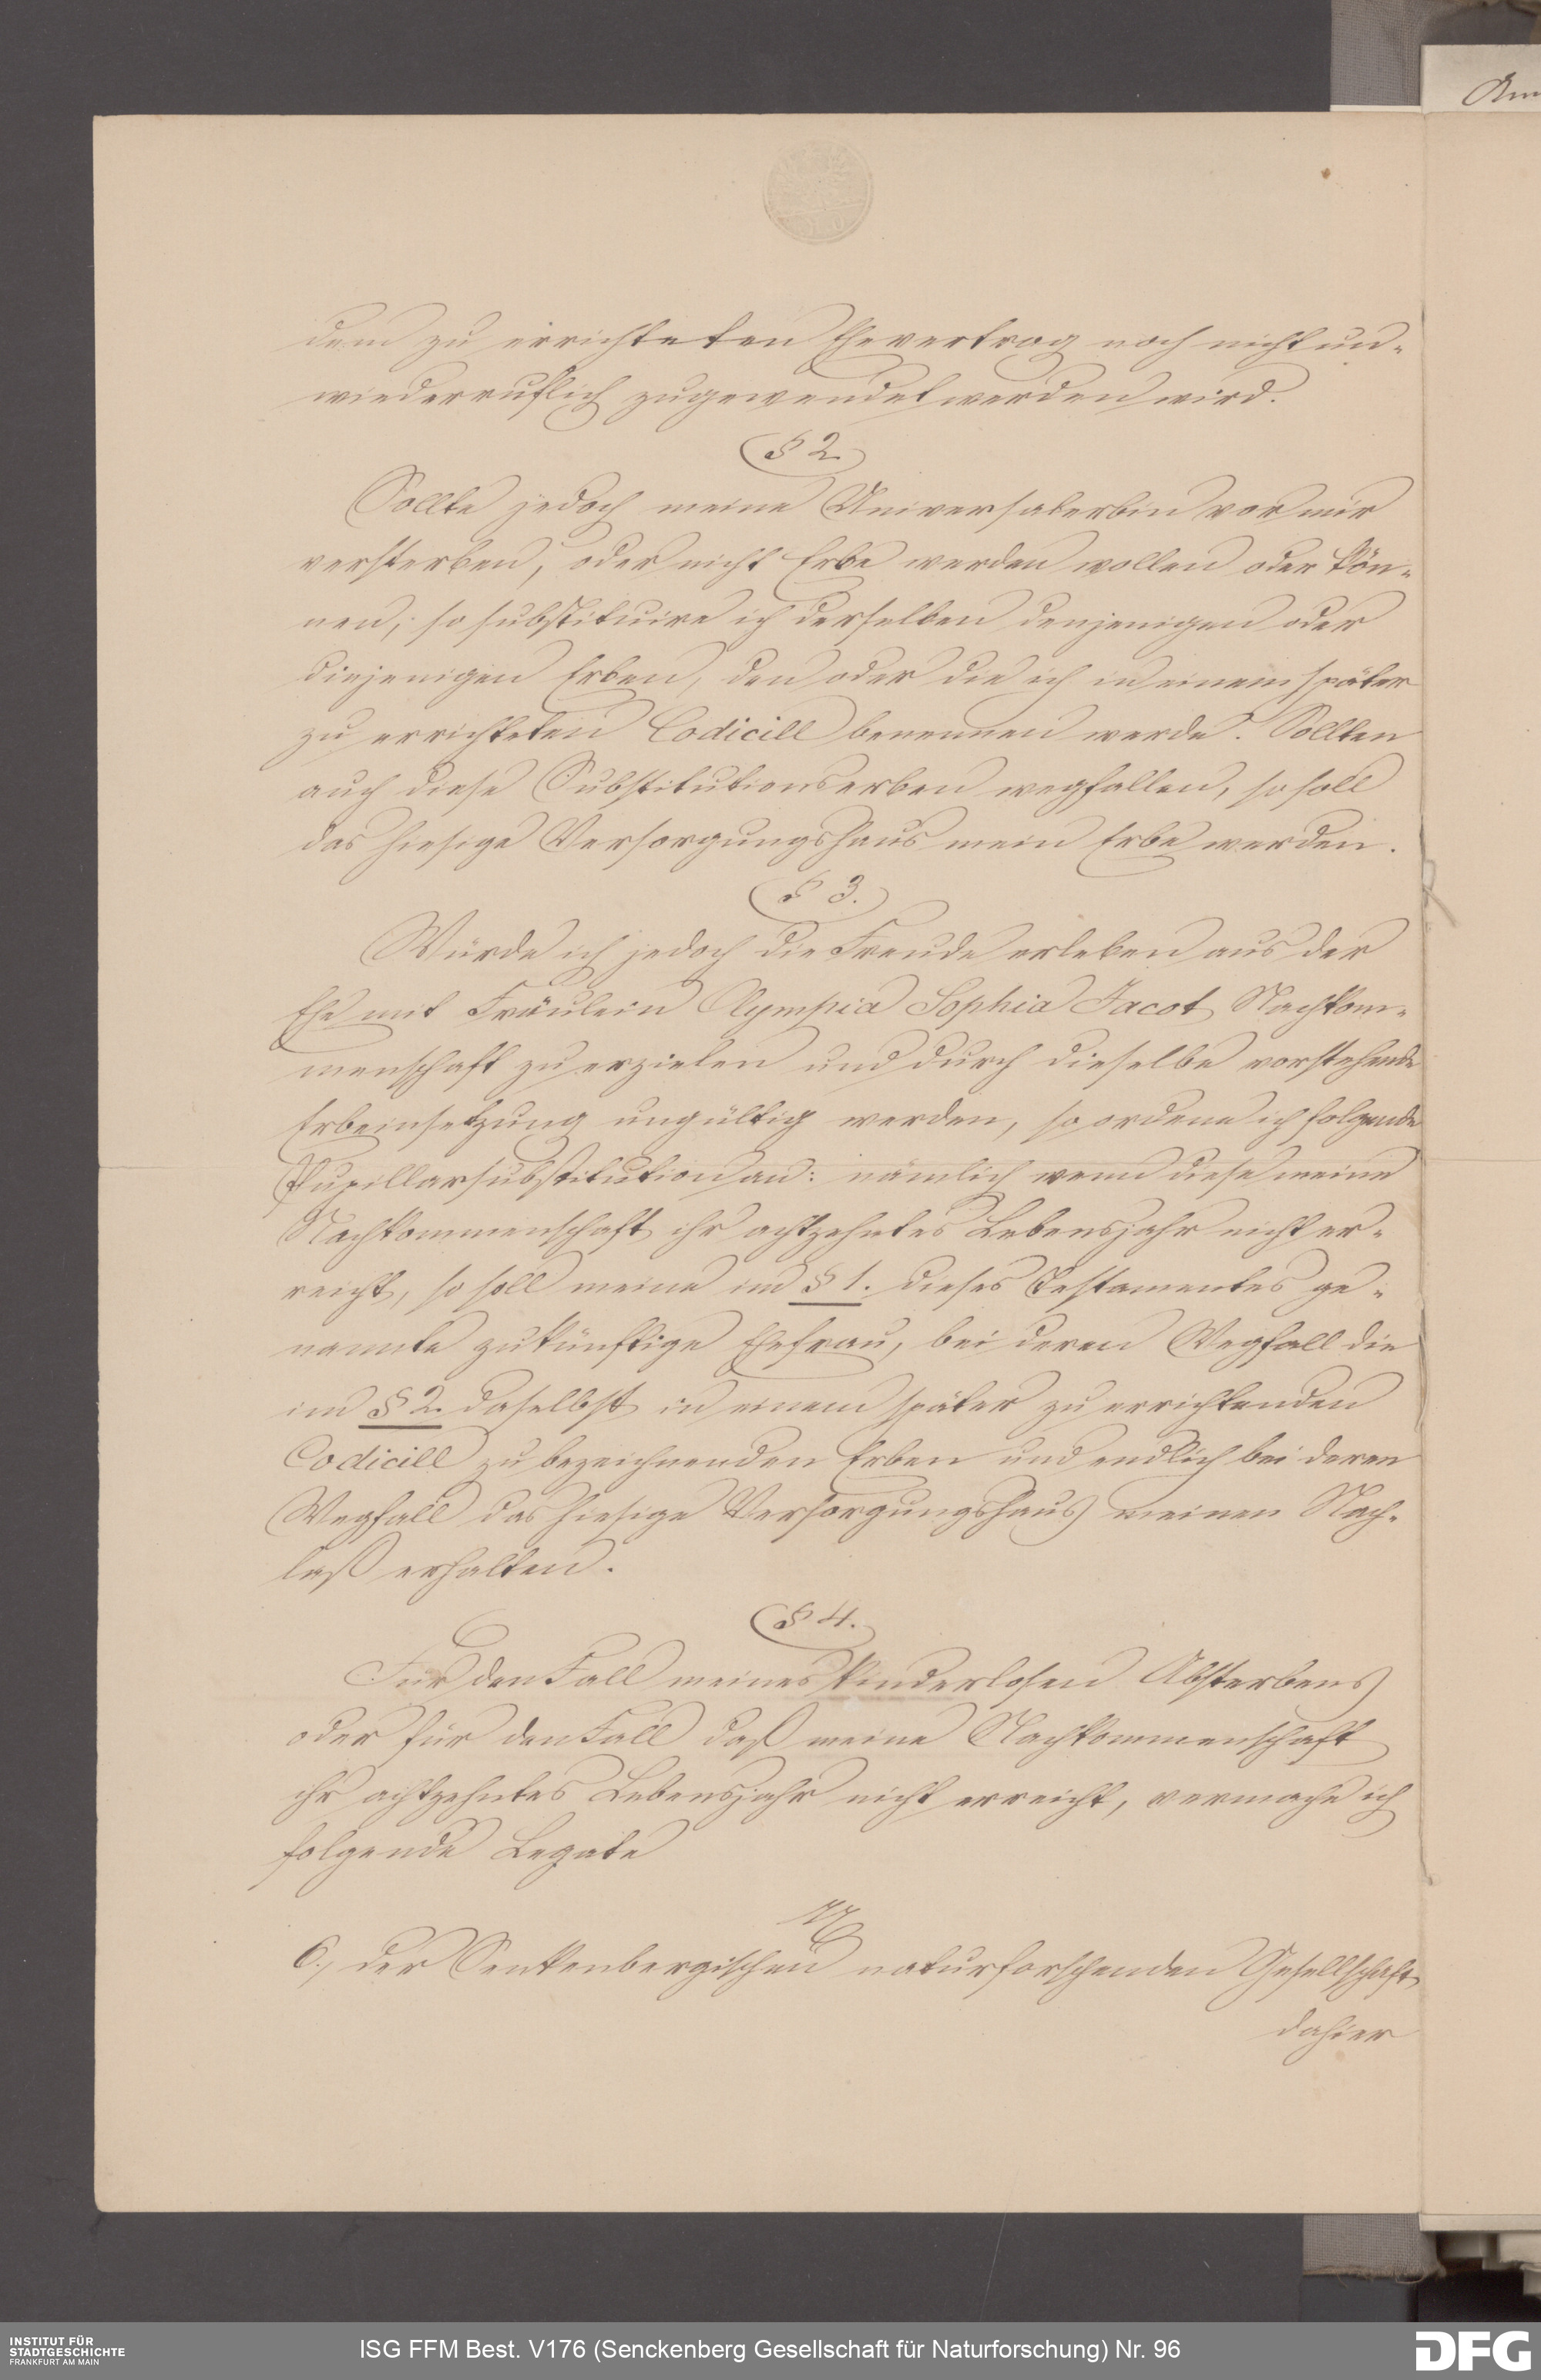 dem zu errichteten Ehevertrag noch nicht un-
wiederruflich zugewendet werden wird.
§ 2.
Sollte jedoch meine Universalerbin vor mir
versterben, oder nicht Erbe werden wollen oder kön-
nen, so substituire ich derselben denjenigen oder
diejenigen Erben, den oder die ich in einem später
zu errichteten Codicill benennen werde. Sollten
auch diese Substitutionserben wegfallen, so soll
das hiesige Versorgungshaus mein Erbe werden.
§ 3.
Würde ich jedoch die Freude erleben aus der
Ehe mit Fräulein Olympia Sophia Jacot Nachkom-
menschaft zu erzielen und durch dieselbe vorstehende
Erbeinsetzung ungültig werden, so ordene ich folgende
Pupillarsubstitution an: nämlich wenn diese meine
Nachkommenschaft ihr achtzehntes Lebensjahr nicht er-
reicht, so soll meine im § 1. dieses Testamentes ge-
nannte zukünftige Ehefrau, bei deren Wegfall die
im § 2. daselbst in einem später zu errichtenden
Codicill zu bezeichnenden Erben und endlich bei deren
Wegfall das hiesige Versorgungshaus meinen Nach-
laß erhalten.
§ 4.
Für den Fall meines kinderlosen Absterbens
oder für den Fall daß meine Nachkommenschaft
ihr achtzehntes Lebensjahr nicht erreicht, vermache ich
folgende Legate
6., der Senkenbergischen naturforschenden Gesellschaft
dahier
INSTITUT FÜR
STADTGESCHICHTE
FRANKFURT AM MAIN
ISG FFM Best. V176 (Senckenberg Gesellschaft für Naturforschung) Nr. 96
DFG